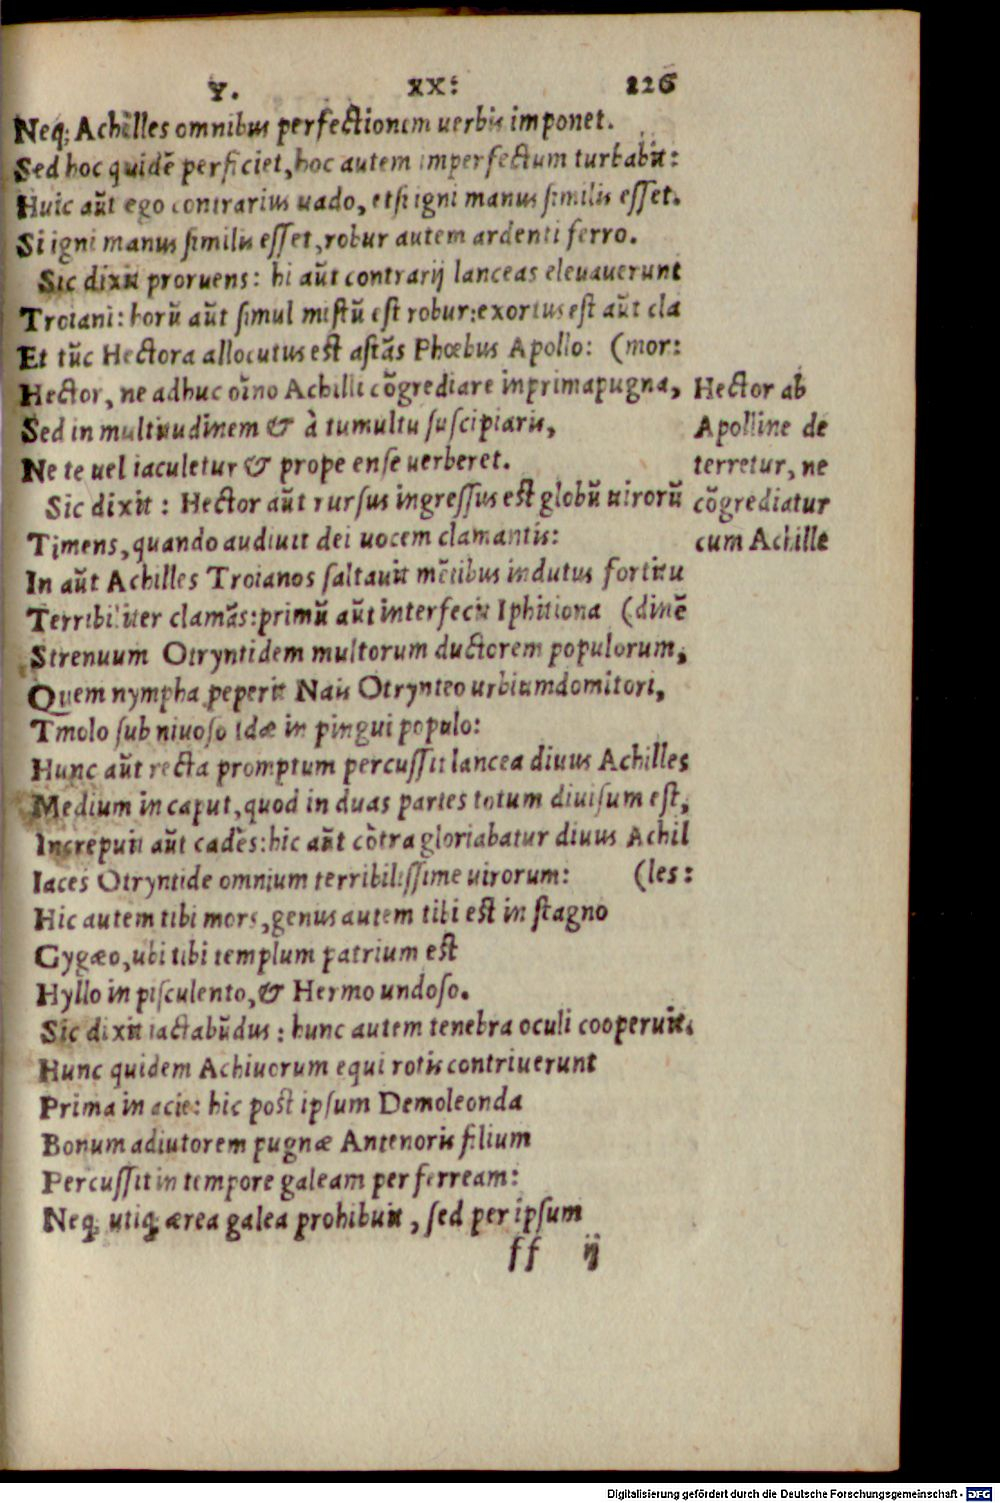 Y. XX: 226
Neq; Achilles omnibus perfectionem uerbis imponet.
Sed hoc quidẽ perficiet, hoc autem imperfectum turbabit:
Huic aũt ego contrarius uado, etsi igni manus similis esset.
Si igni manus similis esset, robur autem ardenti ferro.
Sic dixit proruens: hi aũt contrarij lanceas eleuauerunt
Troiani: horũ aũt simul mistũ est robur: exortus est aũt cla
Et tũc Hectora allocutus est astãs Phœbus Apollo: (mor:
Hector, ne adhuc oĩno Achilli cõgrediare in prima pugna,
Sed in multitudinem & à tumultu suscipiaris,
Ne te uel iaculetur & prope ense uerberet.
Sic dixit: Hector aũt rursus ingressus est globũ uirorũ
Timens, quando audiuit dei uocem clamantis:
In aũt Achilles Troianos saltauit mẽtibus indutus fortitu
Terribiliter clamãs: primũ aũt interfecit Iphitiona (dinẽ
Strenuum Otryntidem multorum ductorem populorum,
Quem nympha peperit Nais Otrynteo urbium domitori,
Tmolo sub niuoso Idæ in pingui populo:
Hunc aũt recta promptum percussit lancea diuus Achilles
Medium in caput, quod in duas partes totum diuisum est,
Increpuit aũt cadẽs: hic aũt cõtra gloriabatur diuus Achil
Iaces Otryntide omnium terribilissime uirorum: (les:
Hic autem tibi mors, genus autem tibi est in stagno
Gygæo, ubi tibi templum patrium est
Hyllo in pisculento, & Hermo undoso.
Sic dixit iactabũdus: hunc autem tenebra oculi cooperuit.
Hunc quidem Achiuorum equi rotis contriuerunt
Prima in acie: hic post ipsum Demoleonda
Bonum adiutorem pugnæ Antenoris filium
Percussit in tempore galeam per ferream:
Neq; utiq; ærea galea prohibuit, sed per ipsum
ff ij
Hector ab
Apolline de
terretur, ne
cõgrediatur
cum Achille
Digitalisierung gefördert durch die Deutsche Forschungsgemeinschaft - DFG